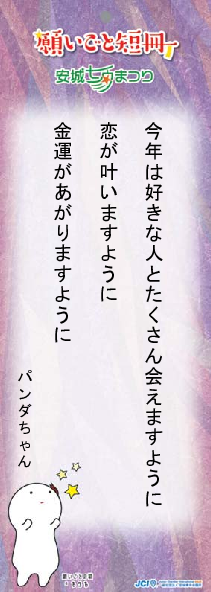 願いごと短冊
安城七夕まつり
今年は好きな人とたくさん会えますように
恋が叶いますように
金運があがりますように
パンダちゃん
JCI